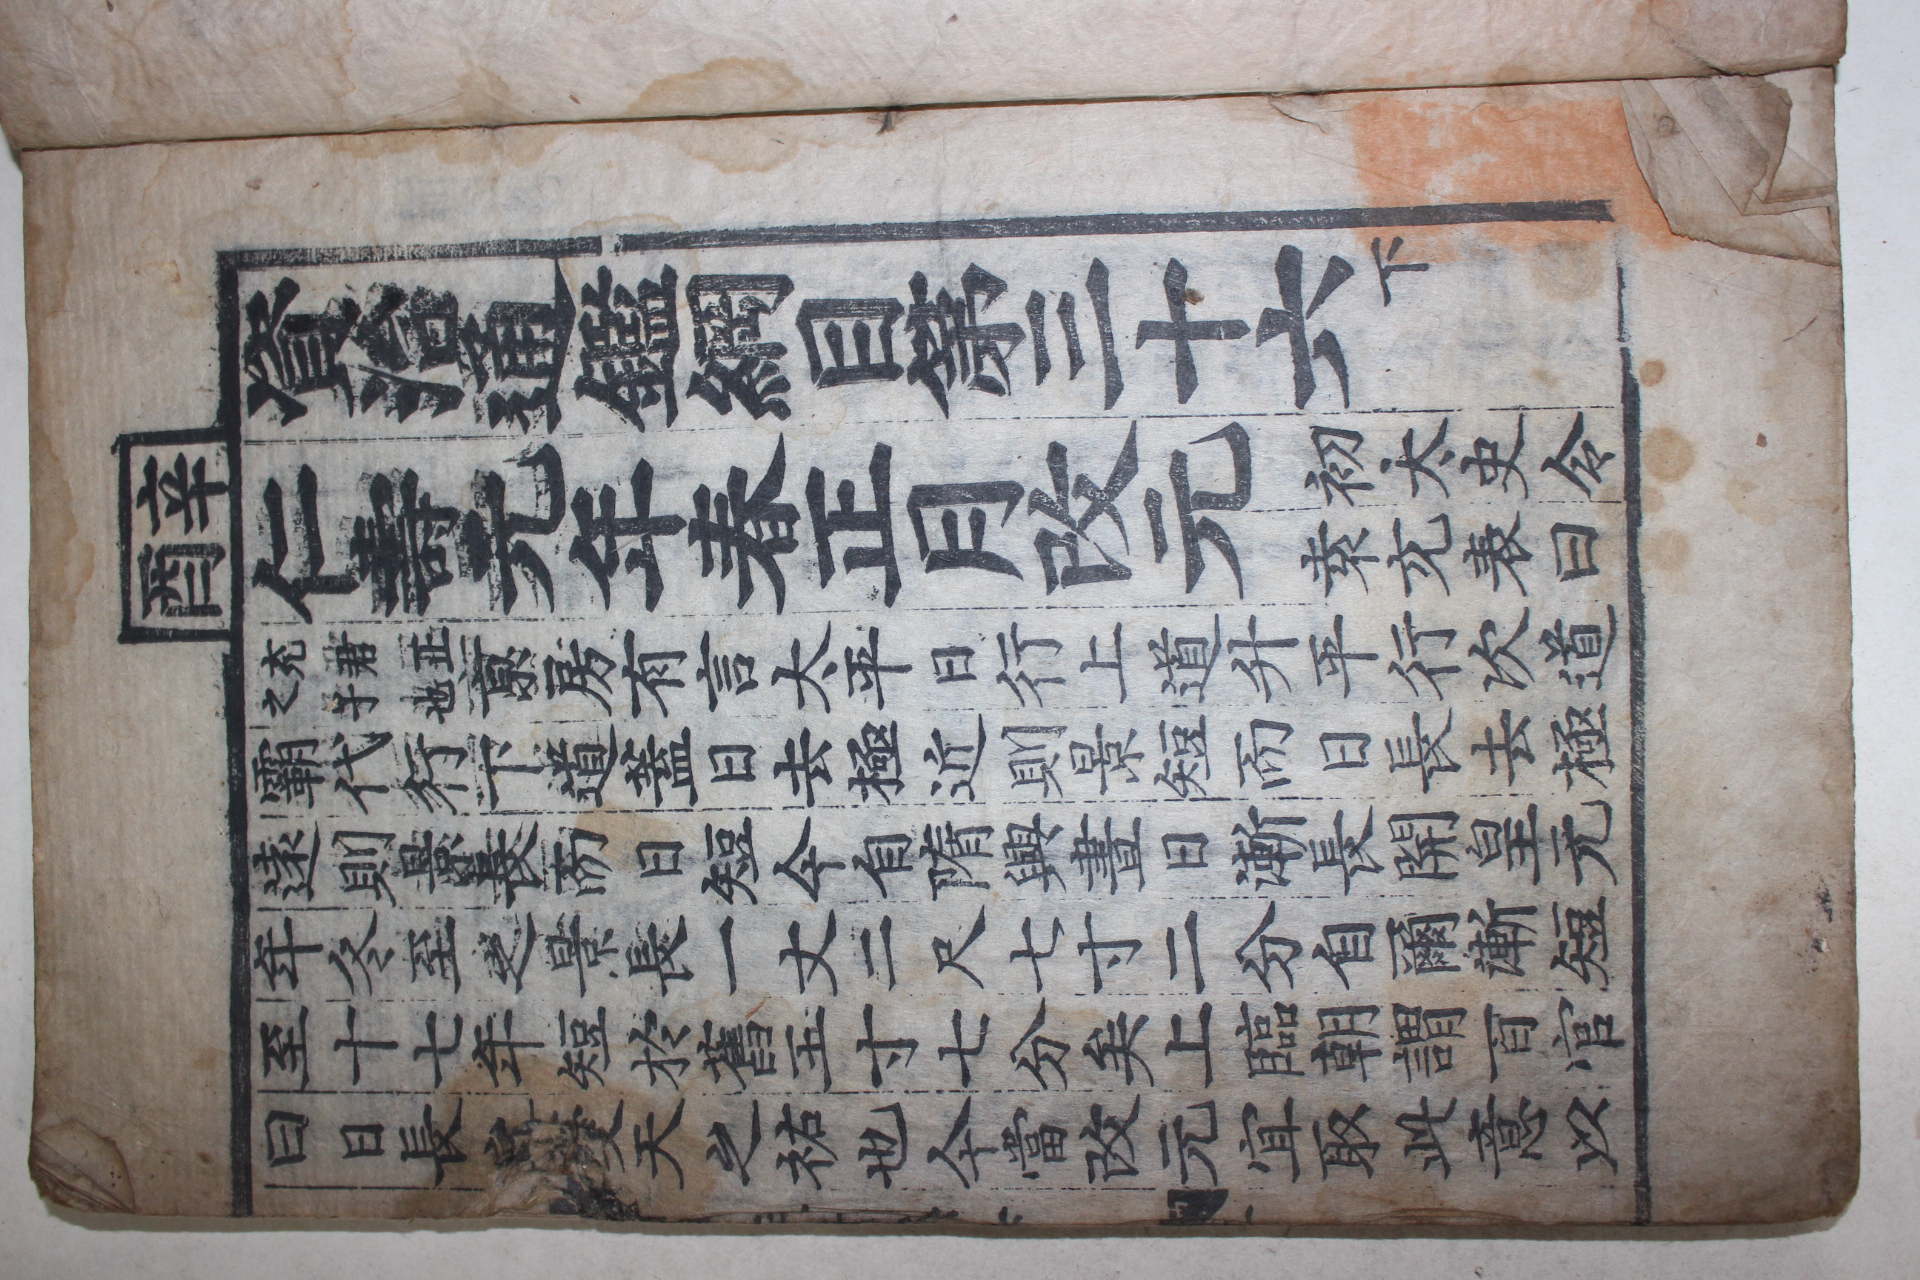 辛酉
資治通鑑綱目第三十六下
仁壽元年春正月改元
初太史令
袁充表曰
充君正
之子也
京房有言太平日行上道升平行次道
霸代行下道蓋日去極近則景短而日長去極
遠則景長而日短今自隋興晝日漸長開皇元
年冬至之景長一丈二尺七寸二分自爾漸短
至十七年短於舊五寸七分矣上臨朝謂百官
曰日長慶天之祐也今當改元宜取此意以